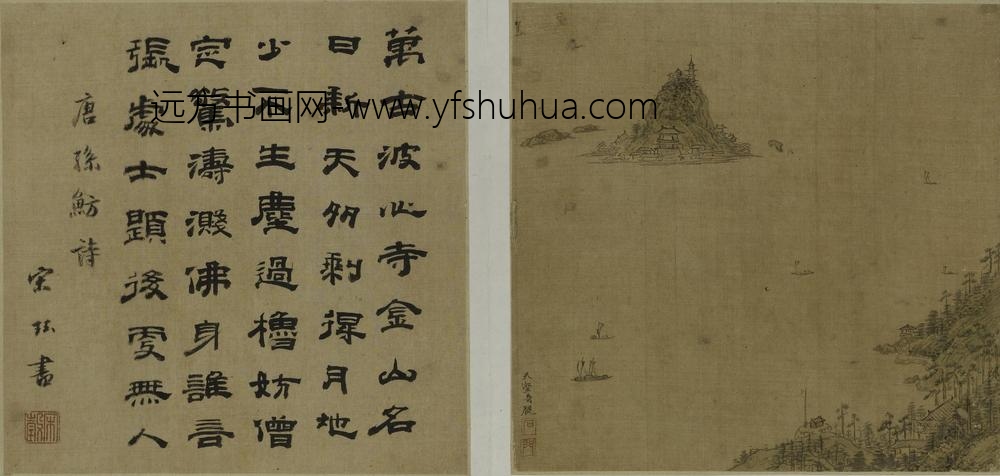 萬古波心寺金山名
日新天多剩得月地
少不生塵過櫓妨僧
定驚濤濺佛身誰言
張處士題後更無人
唐孫魴詩
宋珏書
远方书画网-www.yfshuhua.com